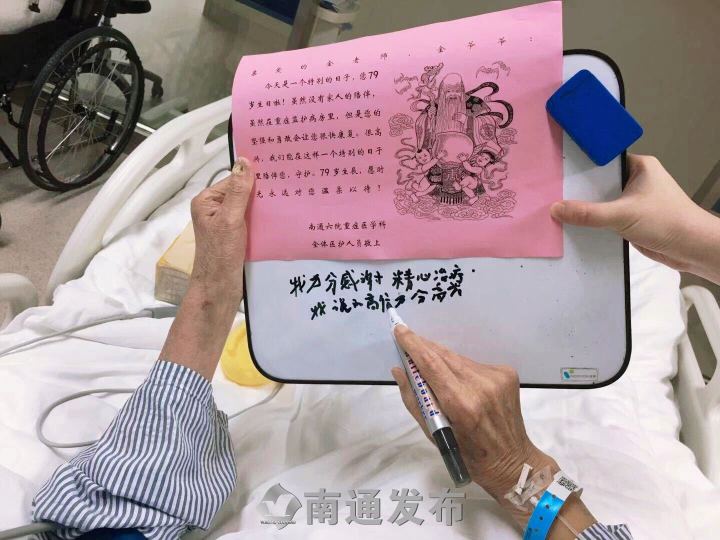 亲爱的金老师、金爷爷：
今天是一个特别的日子，您79
岁生日啦！虽然没有家人的陪伴，
虽然在重症监护病房里，但是您的
坚强和勇敢会让您很快康复。很高
兴，我们能在这样一个特别的日子
里陪伴您，守护。79岁生辰，愿时
光永远对您温柔以待！
南通六院重症医学科
全体医护人员敬上
我万分感谢 精心治疗
我说不高
南通发布